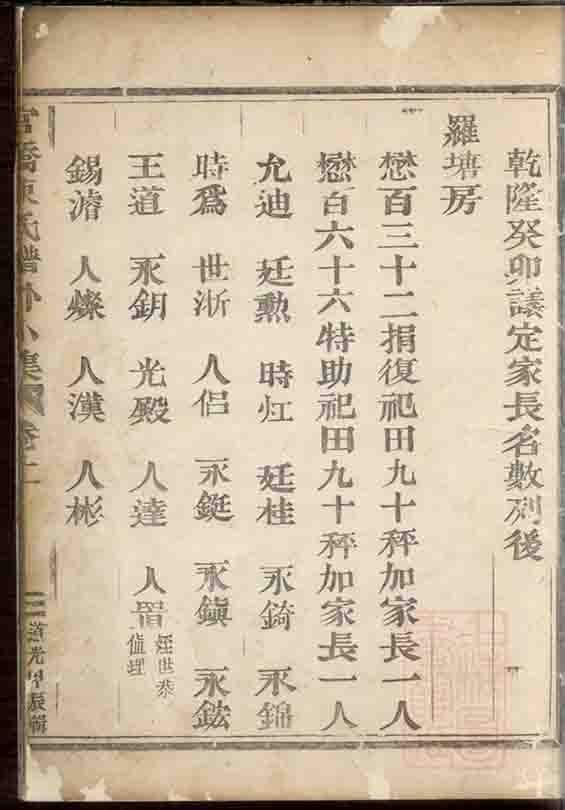 乾隆癸卯議定家長名數列後
羅塘房
懋百三十二捐復祀田九十秤加家長一人
懋百六十六特助祀田九十秤加家長一人
允迪 廷勲 時灴 廷桂 永錡 永錦
時爲 世淅 人侶 永鋌 永鎭 永鋐
王道 永鈅 光殿 人達 人睂 經世叅
值理
錫濬 人燦 人漢 人彬
橋東氏譜 小集 卷十一
道光甲辰輯